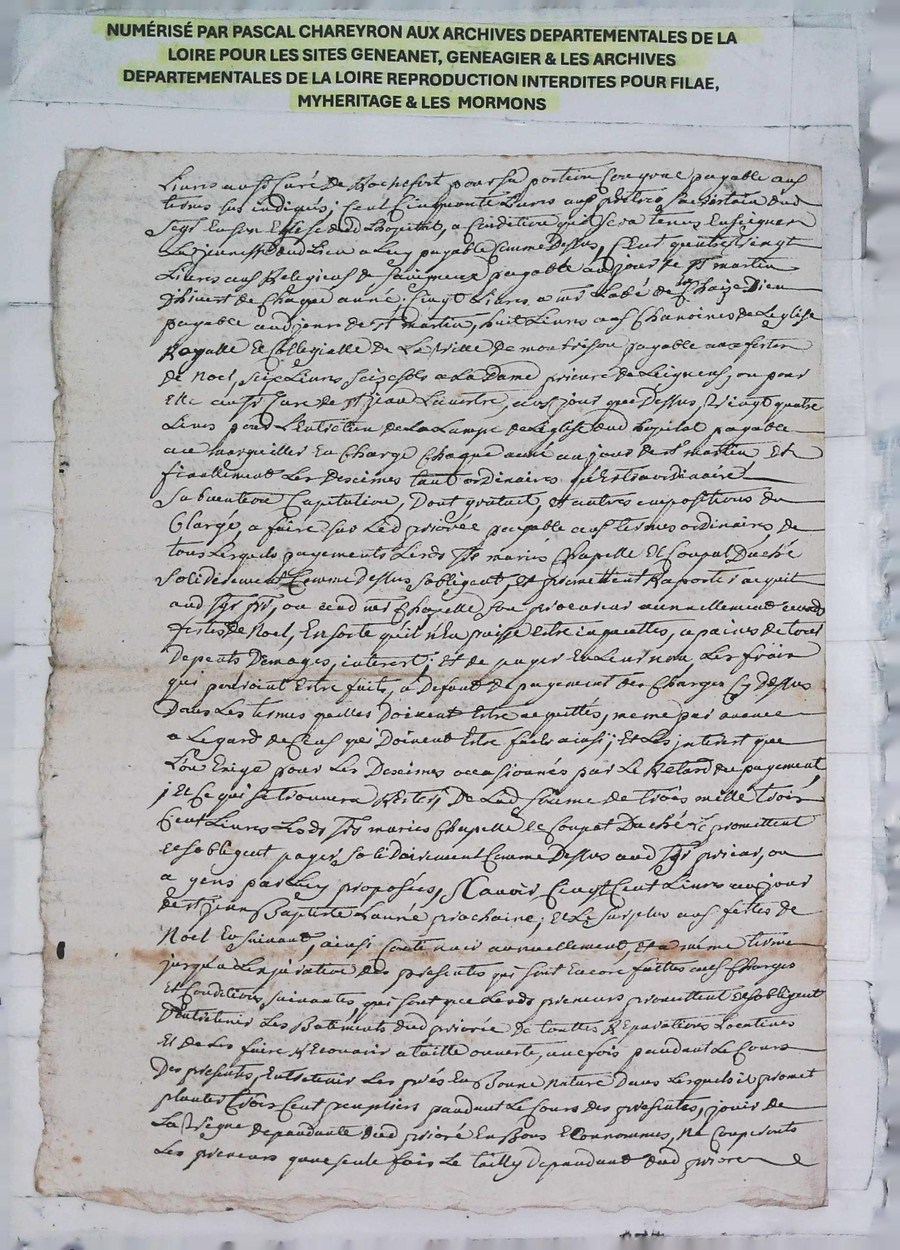 NUMÉRISÉ PAR PASCAL CHAREYRON AUX ARCHIVES DEPARTEMENTALES DE LA
LOIRE POUR LES SITES GENEANET, GENEAGIER & LES ARCHIVES
DEPARTEMENTALES DE LA LOIRE REPRODUCTION INTERDITES POUR FILAE,
MYHERITAGE & LES MORMONS
Livres au Sr Curé de Rochefort pour sa portion congrue payable aux
termes sus indiqués, Cent Cinquante Livres aux
En son Eglise dud hopital, a Condition quil sera tenus Enseigner
La jeunesse dud Lieu payable Comme Dessus, Cent quatre vingt
Livres aux Religieux de Savigneux payable au jour de St martin
D'hivert de Chaque année, vingt Livres a mr Labé de la Chaize Dieu
payable aud jour de St martin, huit Livres aux Chanoines de Leglise
Royalle Et Collegialle de La Ville de montbrison payable aux festes
de Noel, seize Livres seize sols a La Dame prieure de Leigneux, ou pour
Elle au Sr Curé de St jean aux jour que Dessus, vingt quatre
Livres pour L'Entretien de La Lampe de L'Eglise dud hopital payable
au marguiller En Charge Chaque année au jour de St martin Et
finallement Les Descimes tant ordinaires qu'Extraordinaires
Subvention Capitation, Dont gratuit, et autres impositions du
Clergé, a faire sur Led prioré payable aux termes ordinaires de
tous Lesquels payements Lesds mariés Chapelle Et Coupat Duché
Solidairement Comme Dessus sobligent, Et promettent Raporter acquit
aud Sgr ou aud mr Chapelle son procureur annuellement
festes de Noel, En sorte qu'il n'En puisse Estre inquiettés, a paines de tous
Depents Domages, interest; et de payer En Leur nom, Les frais
qui pouroient Estre faits, a Defaut de payement des Charges Cy Dessus
Dans Les termes qu'elles Doivent Estre acquittés, meme par avance
a Legard de Ceux qui Doivent Estre faits ainsi; Et Les interest que
L'on Exige pour Les Descimes occasionnés par Le Retard du payement,
Et Ce qui se trouvera Rester De Lad somme de trois mille trois
Cent Livres Lesds mariés Chapelle et Coupat Duché promettent
et sobligent payer solidairement Comme Dessus aud Sgr prieur, ou
a gens par Luy proposées, Scavoir Cinq Cent Livres au jour
de St jean Baptiste L'année prochaine; Et Le surplus aux festes de
Noel En suivant, ainsi Continuer annuellement, Et a méme terme
jusqu'a L'expiration des presentes qui sont Encore faittes aux Charges
Et Conditions, suivantes, qui sont que Lesds preneurs promettent Et sobligent
D'entretenir Les Batiments dud prioré de touttes Reparations Locatives
Et de Les faire Recouvrir a taille ouverte, une fois pendant Le Cours
Des presentes, Entretenir Les prés En Bonne nature Dans Lesquels il promet
planter trois Cent peupliers pendant Le Cours des presentes, jouir de
La Vigne dependante dud prioré En Bons Economes, Ne Couperont
Les preneurs qu'une seule fois Le tailly dependant dud prioré